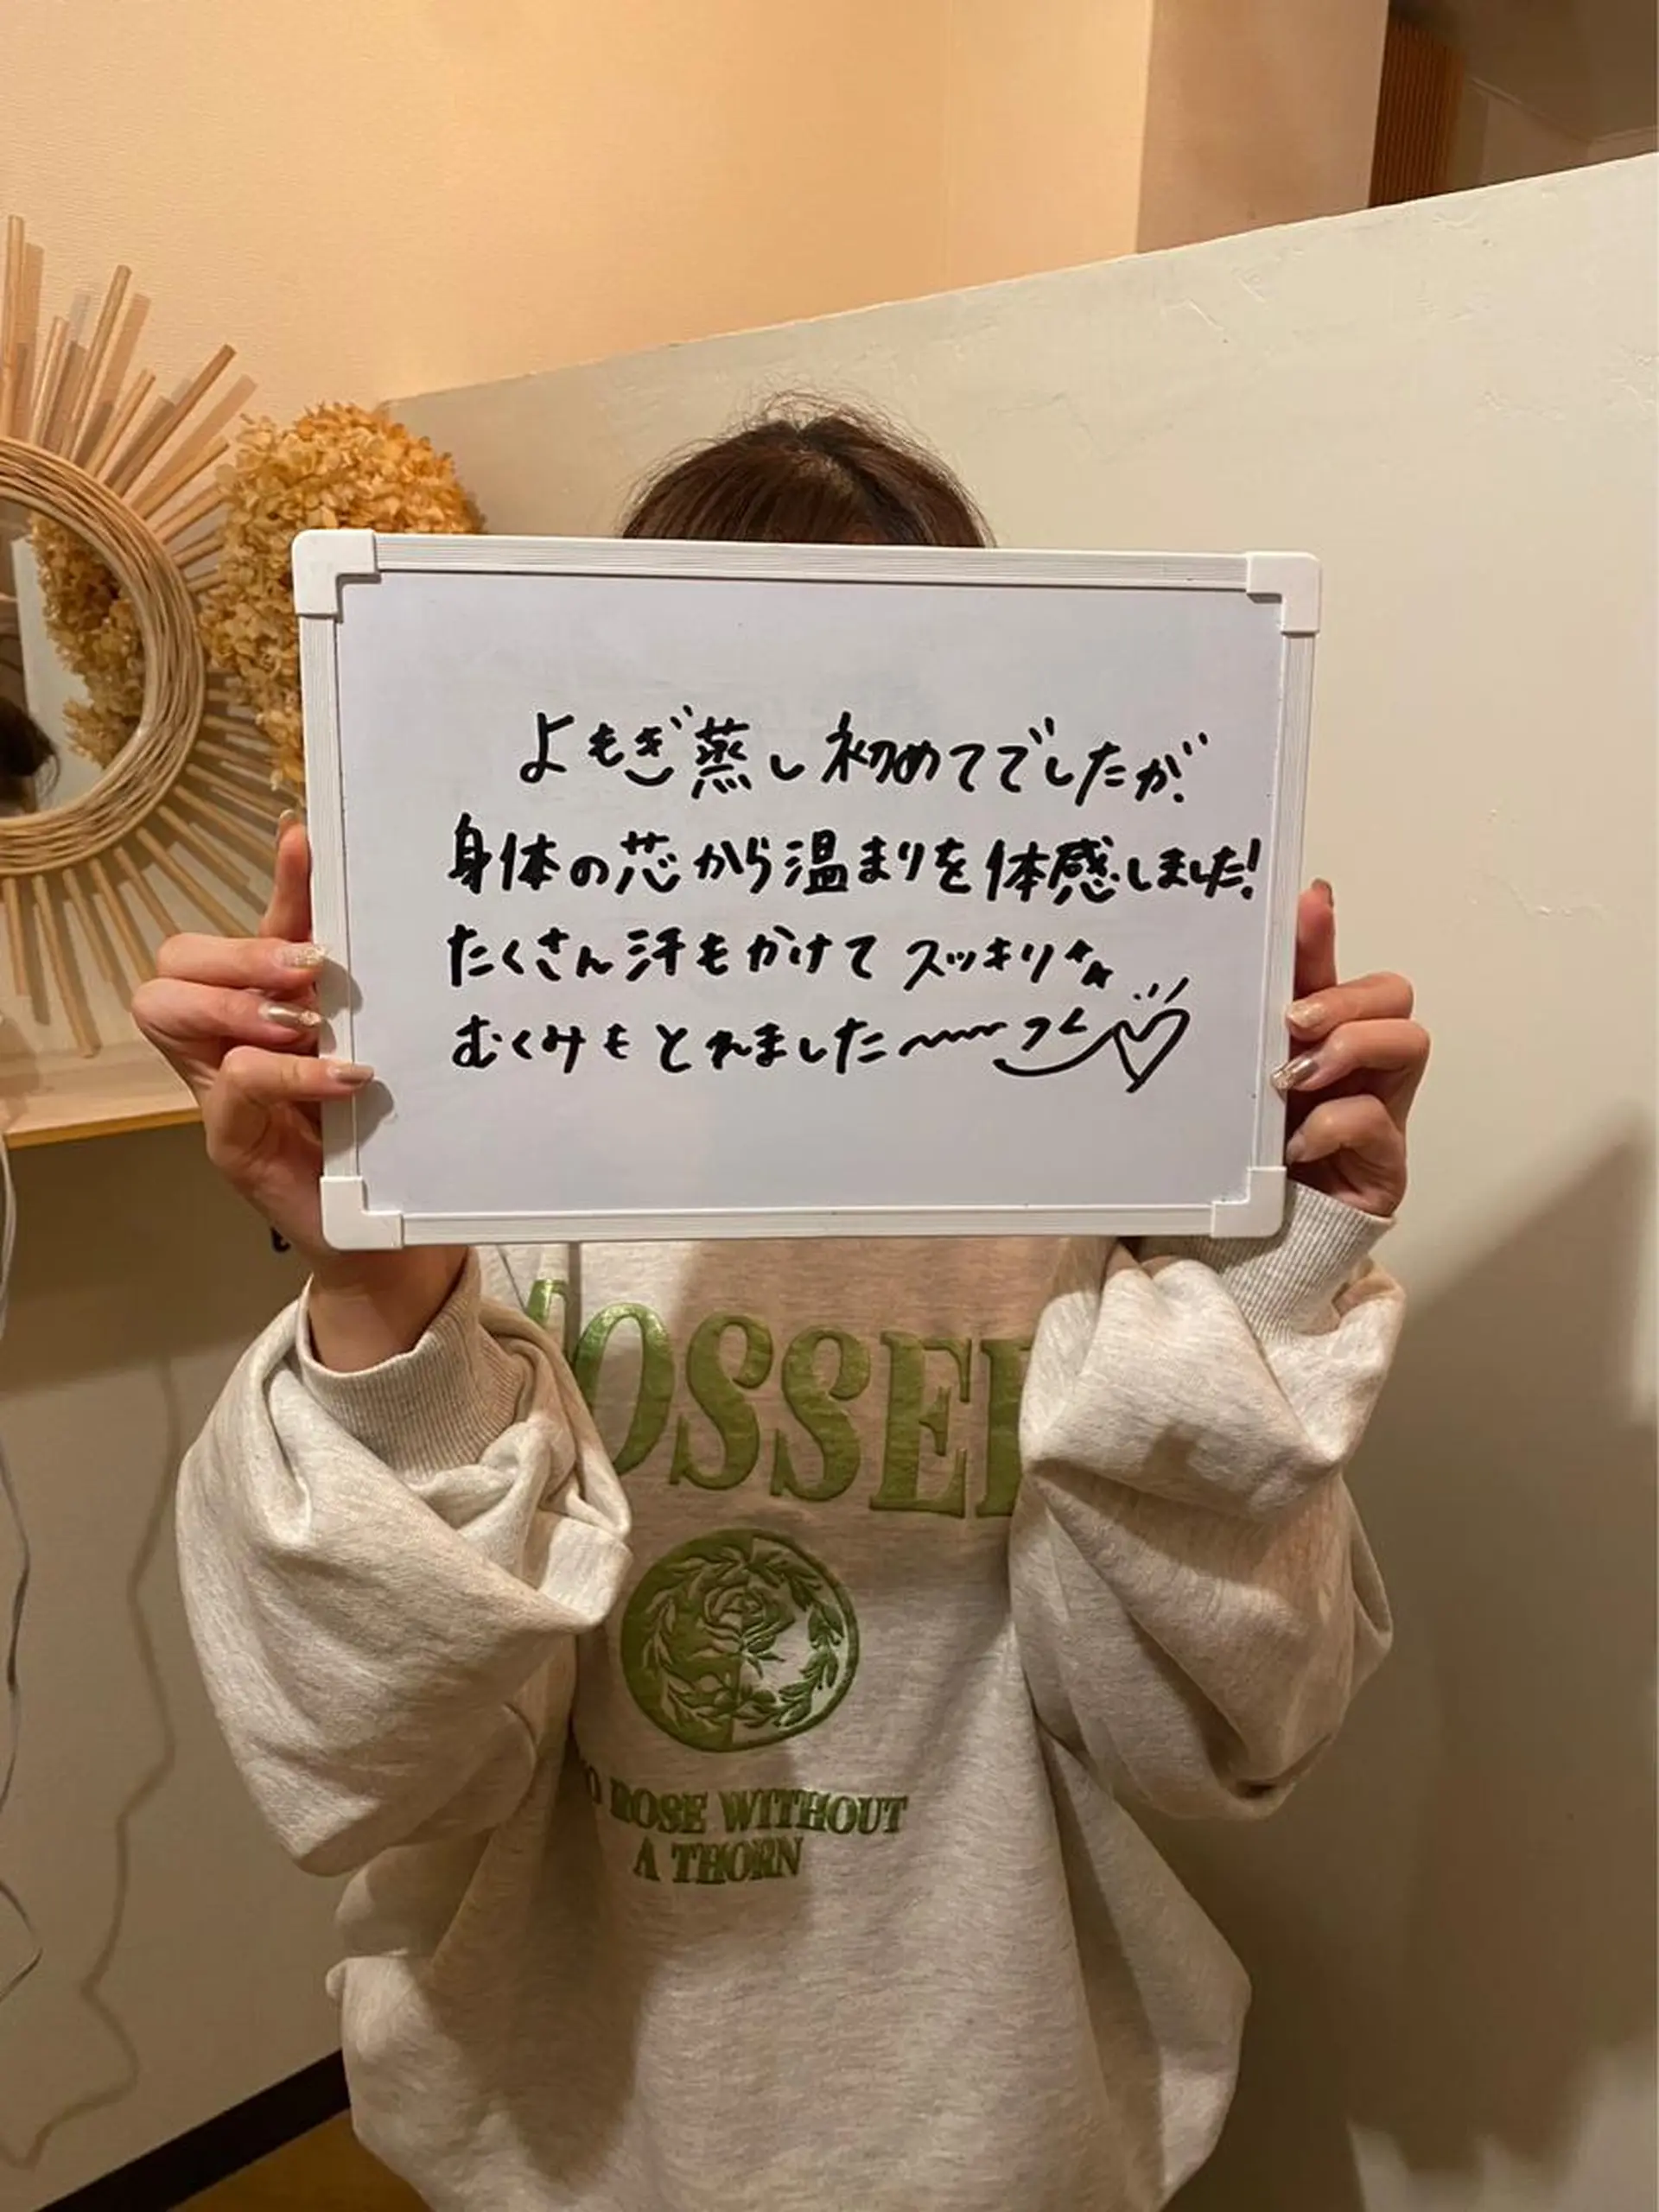 よもぎ蒸し初めてでしたが、
身体の芯から温まりを体感しました!
たくさん汗もかけてスッキリ
むくみもとれました〜
OSSE
ROSE WITHOUT
A THORN